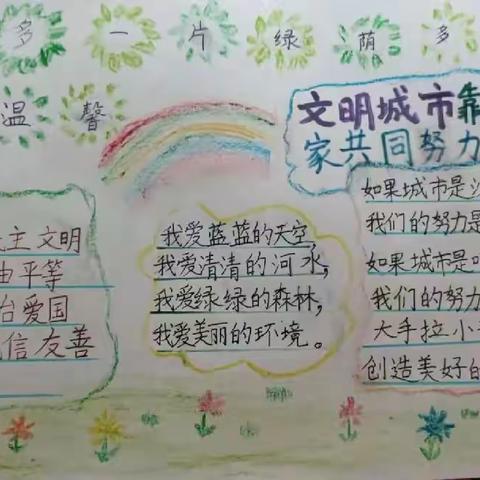 多一片绿荫多
温馨
文明城市靠
家共同努力
主文明
由平等
治爱国
信友善
我爱蓝蓝的天空,
我爱清清的河水,
我爱绿绿的森林,
我爱美丽的环境。
如果城市是
我们的努力是
如果城市是
我们的努力
大手拉小
创造美好的